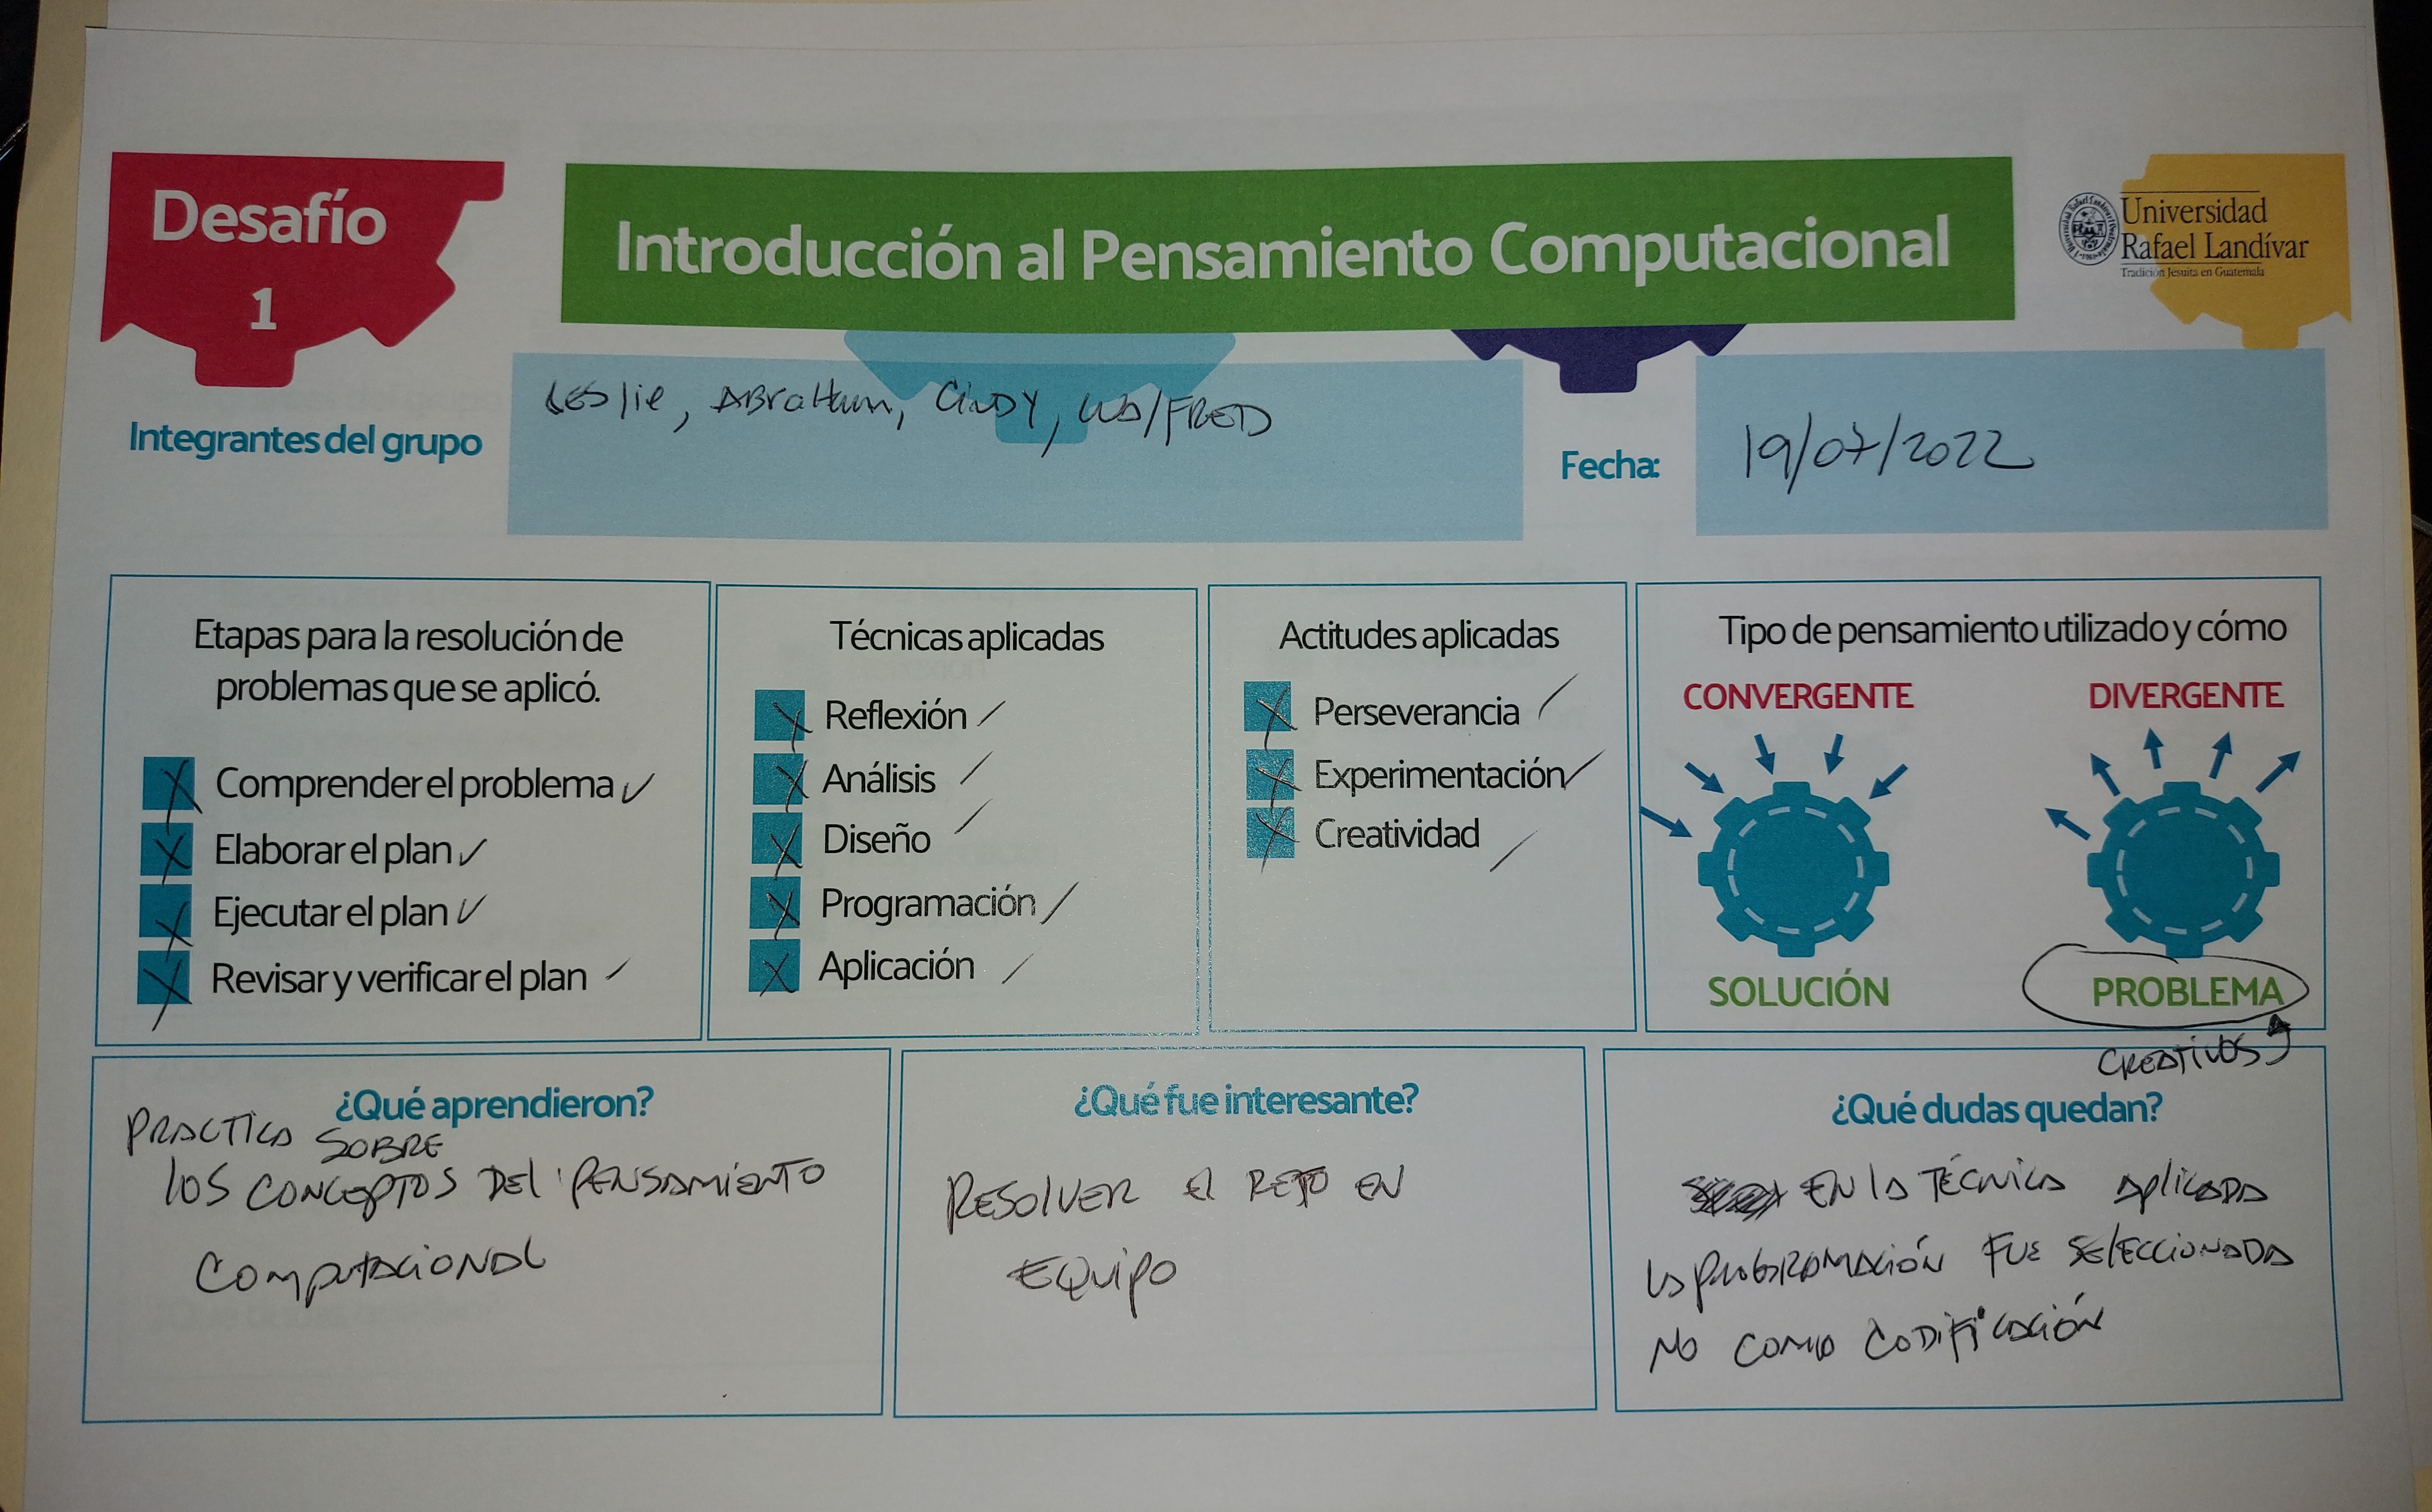 Desafío
1
Introducción al Pensamiento Computacional
Universidad
Rafael Landívar
Tradición Jesuita en Guatemala
Integrantes del grupo
Leslie, Abraham, Cindy,
Fecha:
19/07/2022
Etapas para la resolución de
problemas que se aplicó.
X Comprender el problema ✓
X Elaborar el plan ✓
X Ejecutar el plan ✓
X Revisar y verificar el plan /
Técnicas aplicadas
X Reflexión /
X Análisis /
X Diseño /
X Programación /
X Aplicación /
Actitudes aplicadas
X Perseverancia /
X Experimentación ✓
X Creatividad /
Tipo de pensamiento utilizado y cómo
CONVERGENTE
SOLUCIÓN
DIVERGENTE
PROBLEMA
CREATIVOS
¿Qué aprendieron?
PRACTICA SOBRE
LOS CONCEPTOS DEL PENSAMIENTO
COMPUTACIONAL
¿Qué fue interesante?
RESOLVER EL RETO EN
EQUIPO
¿Qué dudas quedan?
EN LA TÉCNICA APLICADA
LA PROGRAMACIÓN FUE SELECCIONADA
NO COMO CODIFICACIÓN